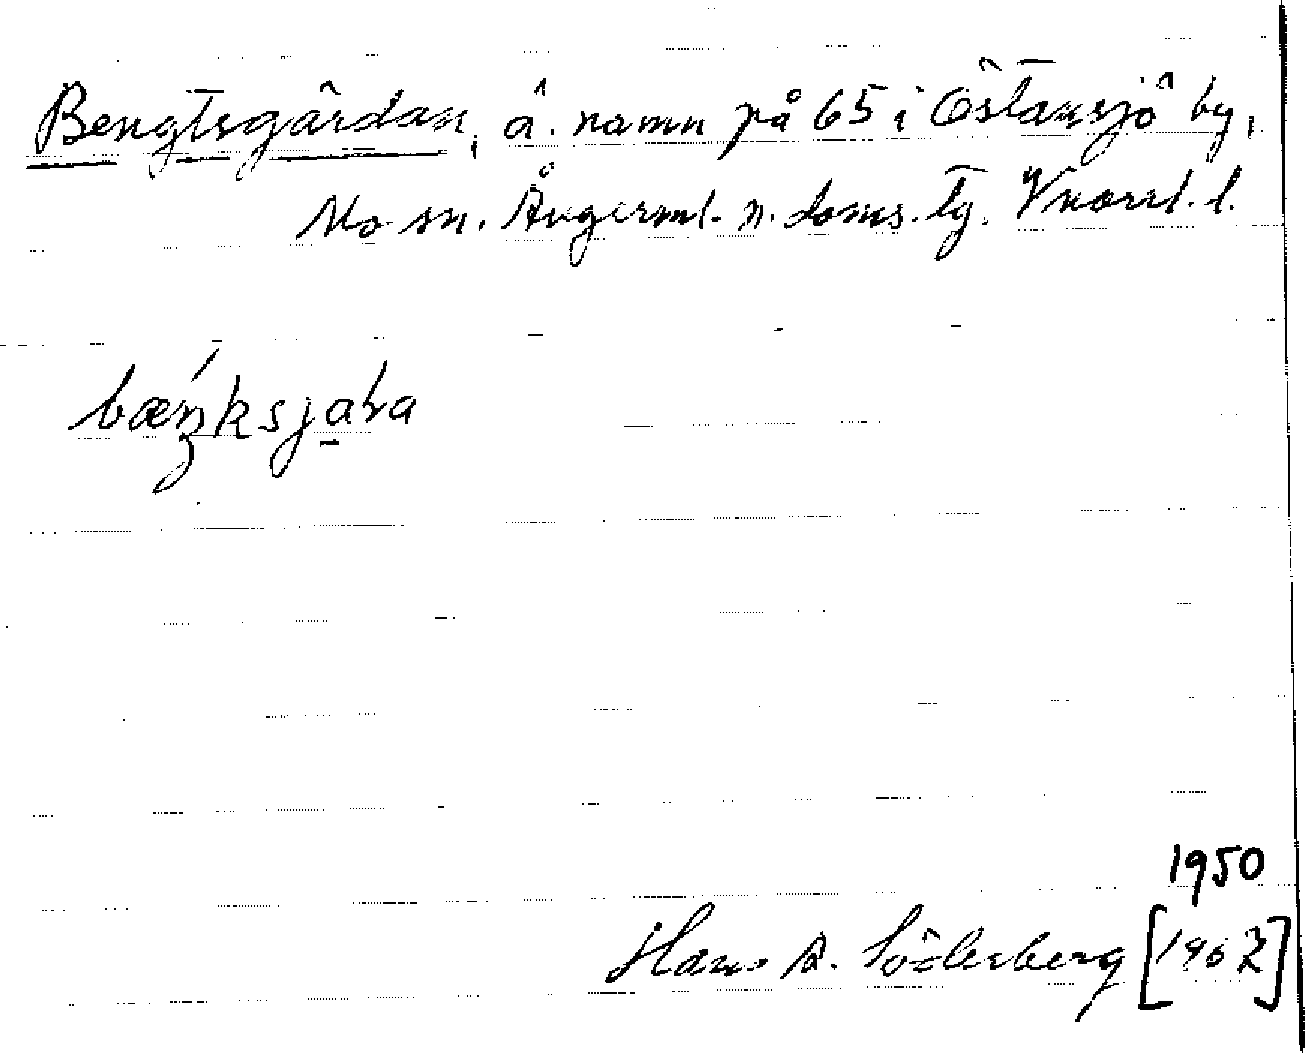 Bengtsgårdan, ä. namn på 65 i Östansjö by,
Mo sn. Ångerml. n. doms. tg. Vnorrl. l.
bæŋksjaḷa
1950
Hans A. Söderberg [1962]